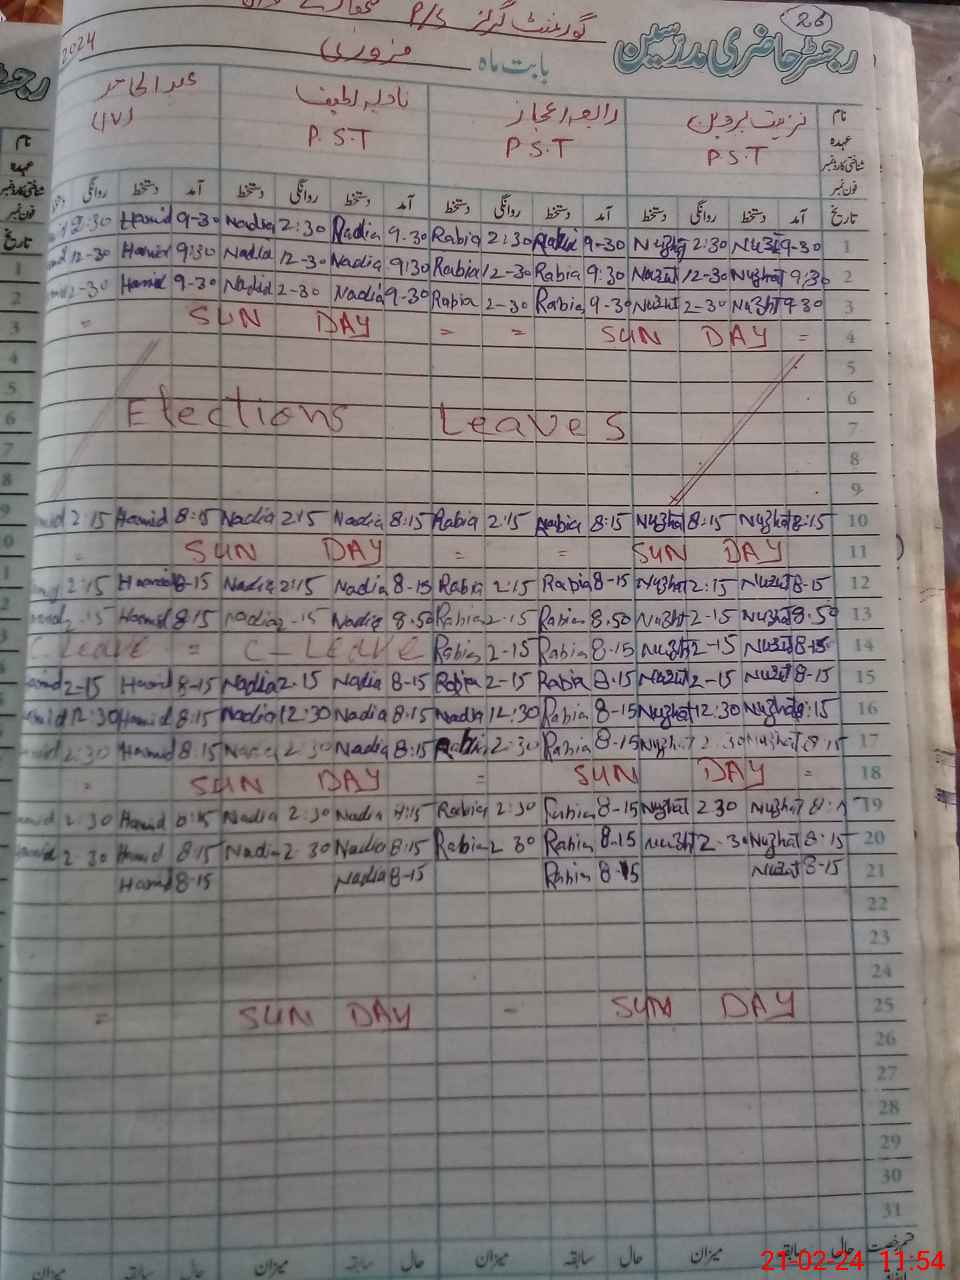 26
رجسٹر حاضری مدرسین
گورنمنٹ گرلز P/S
بابت ماہ فروری 2024
نام نزہت پروین رابعہ اعجاز نادیہ لطیف
عہدہ P.S.T P.S.T P.S.T
شناختی کارڈ نمبر
فون نمبر
تاریخ آمد دستخط روانگی دستخط آمد دستخط روانگی دستخط آمد دستخط روانگی دستخط آمد دستخط روانگی
2:30 Hamid 9-30 Nadia 2:30 Nadia 9.30 Rabia 2:30 Rabia 9-30 Nuzhat 2:30 Nuzhat 9-30 1
12-30 Hamid 9:30 Nadia 12-30 Nadia 9:30 Rabia 12-30 Rabia 9:30 Nuzhat 12-30 Nuzhat 9:30 2
2-30 Hamid 9-30 Nadia 2-30 Nadia 9-30 Rabia 2-30 Rabia 9-30 Nuzht 2-30 Nuzht 9 30 3
= SUN DAY = = SUN DAY = 4
5
6
Elections Leaves 7
8
9
2:15 Hamid 8:15 Nadia 2:15 Nadia 8:15 Rabia 2:15 Rabia 8:15 Nuzhat 8:15 Nuzhat 8:15 10
= SUN DAY = = SUN DAY 11
2:15 Hamid 8-15 Nadia 2:15 Nadia 8-15 Rabia 2:15 Rabia 8-15 Nuzhat 2:15 Nuzht 8-15 12
2-15 Hamid 8:15 Nadia 2-15 Nadia 8.50 Rabia 2-15 Rabia 8.50 Nuzht 2-15 Nuzhat 8.50 13
C Leave = C-LEAVE Rabia 2-15 Rabia 8-15 Nuzht 2-15 Nuzht 8-15 14
2-15 Hamid 8-15 Nadia 2.15 Nadia 8-15 Rabia 2-15 Rabia 8.15 Nuzht 2-15 Nuzht 8-15 15
12:30 Hamid 8:15 Nadia 12:30 Nadia 8:15 Nadia 12:30 Rabia 8-15 Nuzhat 12:30 Nuzhat 8:15 16
2:30 Hamid 8:15 Nadia 2 30 Nadia 8:15 Rabia 2:30 Rabia 8-15 Nuzhat 2:30 Nuzhat 8:15 17
= SUN DAY = SUN DAY = 18
2:30 Hamid 8:15 Nadia 2:30 Nadia 8:15 Rabia 2:30 Rabia 8-15 Nuzhat 2 30 Nuzhat 19
2.30 Hamid 8:15 Nadia 2.30 Nadia 8:15 Rabia 2 30 Rabia 8-15 Nuzht 2.30 Nuzhat 8:15 20
Hamid 8-15 Nadia 8-15 Rabia 8-15 Nuzht 8-15 21
22
23
24
= SUN DAY - SUN DAY 25
26
27
28
29
30
31
حال سابقہ میزان حال سابقہ میزان حال سابقہ میزان حال سابقہ میزان
21-02-24 11:54